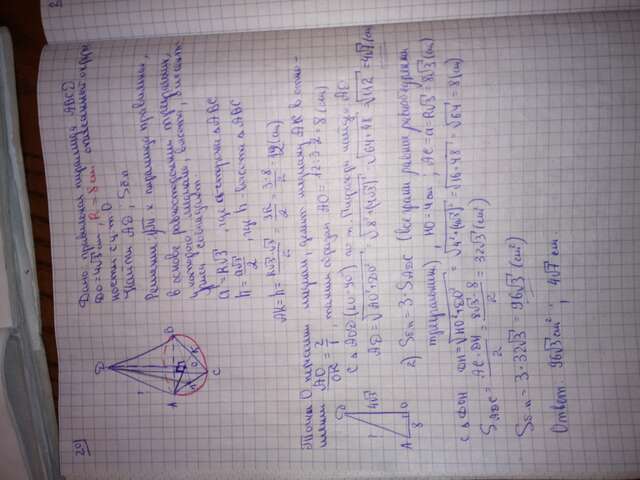 29)
Дано: правильная пирамида ABCD
DO=4√3 см, R=8 см описанной окруж
ности с ц. т. O
Найти AD, Sб.п
Решение: т.к пирамида правильная,
в основе равносторонний треугольник,
у которого медиана, высота, биссект-
риса совпадают.
a=R√3, где a-сторона ΔABC
h=a√3/2, где h высота ΔABC
AK=h=8√3·√3/2=3R/2=3·8/2=12(см)
Точка O пересечения медиан, делит медиану AK в отно-
шении AO/OK=2/1, таким образом AO=12:3·2=8(см)
С ΔAOD(∠O=90°) по т. Пифагора найдем AD
AD=√AO²+DO²=√8²+(4√3)²=√64+48=√112=4√7(см)
D
? 4√3
A 8 O
2) Sб.п=3·SADC (все грани равные равнобедренные
треугольники) HO=4 см; AC=a=R√3=8√3(см)
С ΔDOH DH=√HO²+DO²=√4²+(4√3)²=√16+48=√64=8(см)
SADC=AC·DH/2=8√3·8/2=32√3(см²)
Sб.п=3·32√3=96√3(см²)
Ответ 96√3 см²; 4√7 см
D
A B
H O K
C